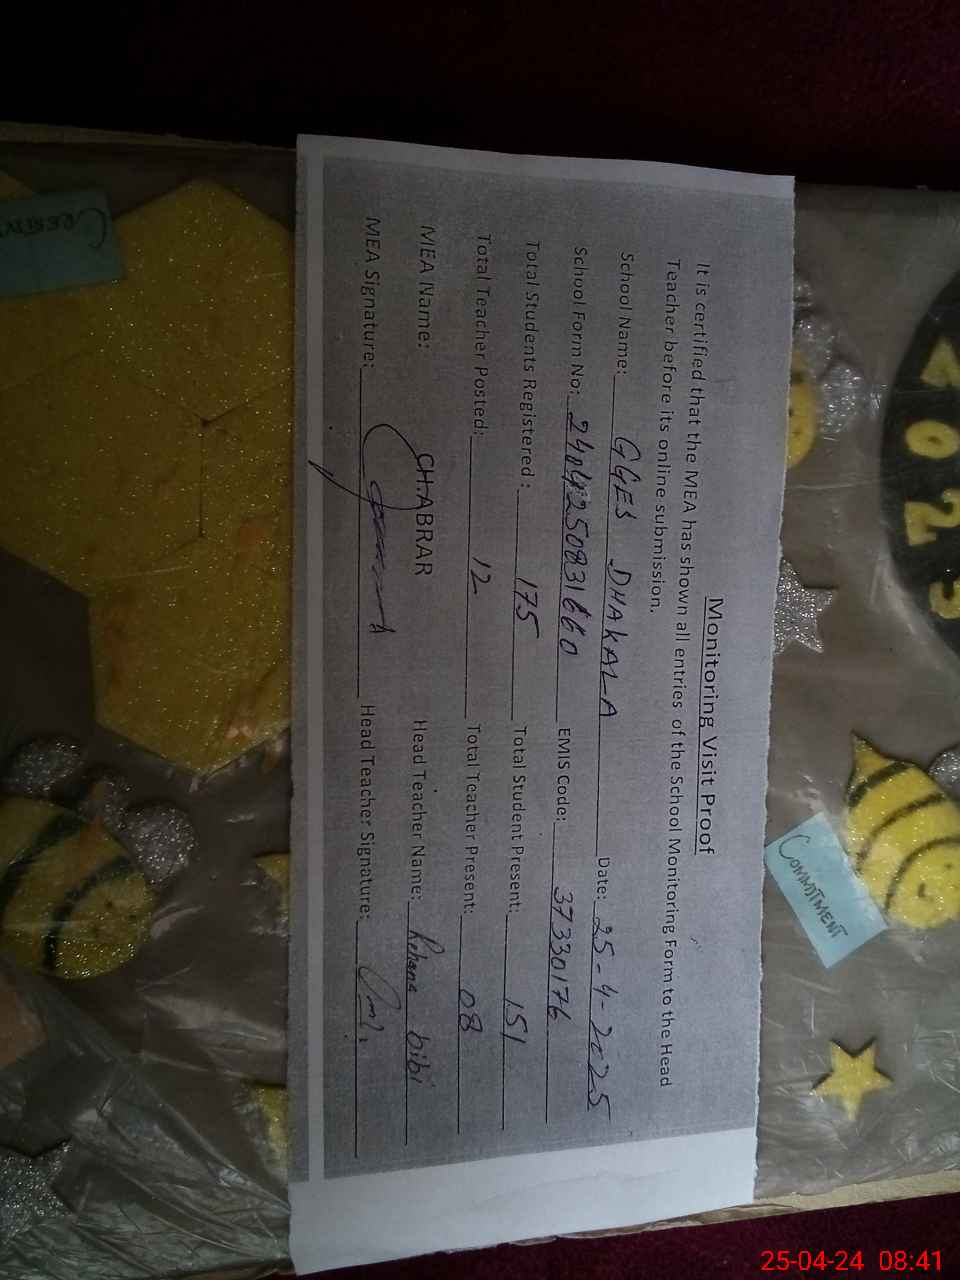 Monitoring Visit Proof
It is certified that the MEA has shown all entries of the School Monitoring Form to the Head
Teacher before its online submission.
School Name: GGES DHAKALA Date: 25-4-2025
School Form No: 2404250831660 EMIS Code: 37330176
Total Students Registered : 175 Total Student Present: 151
Total Teacher Posted: 12 Total Teacher Present: 08
MEA Name: CH.ABRAR Head Teacher Name: Rehana bibi
MEA Signature: Head Teacher Signature:
COMMITMENT
2023
25-04-24 08:41